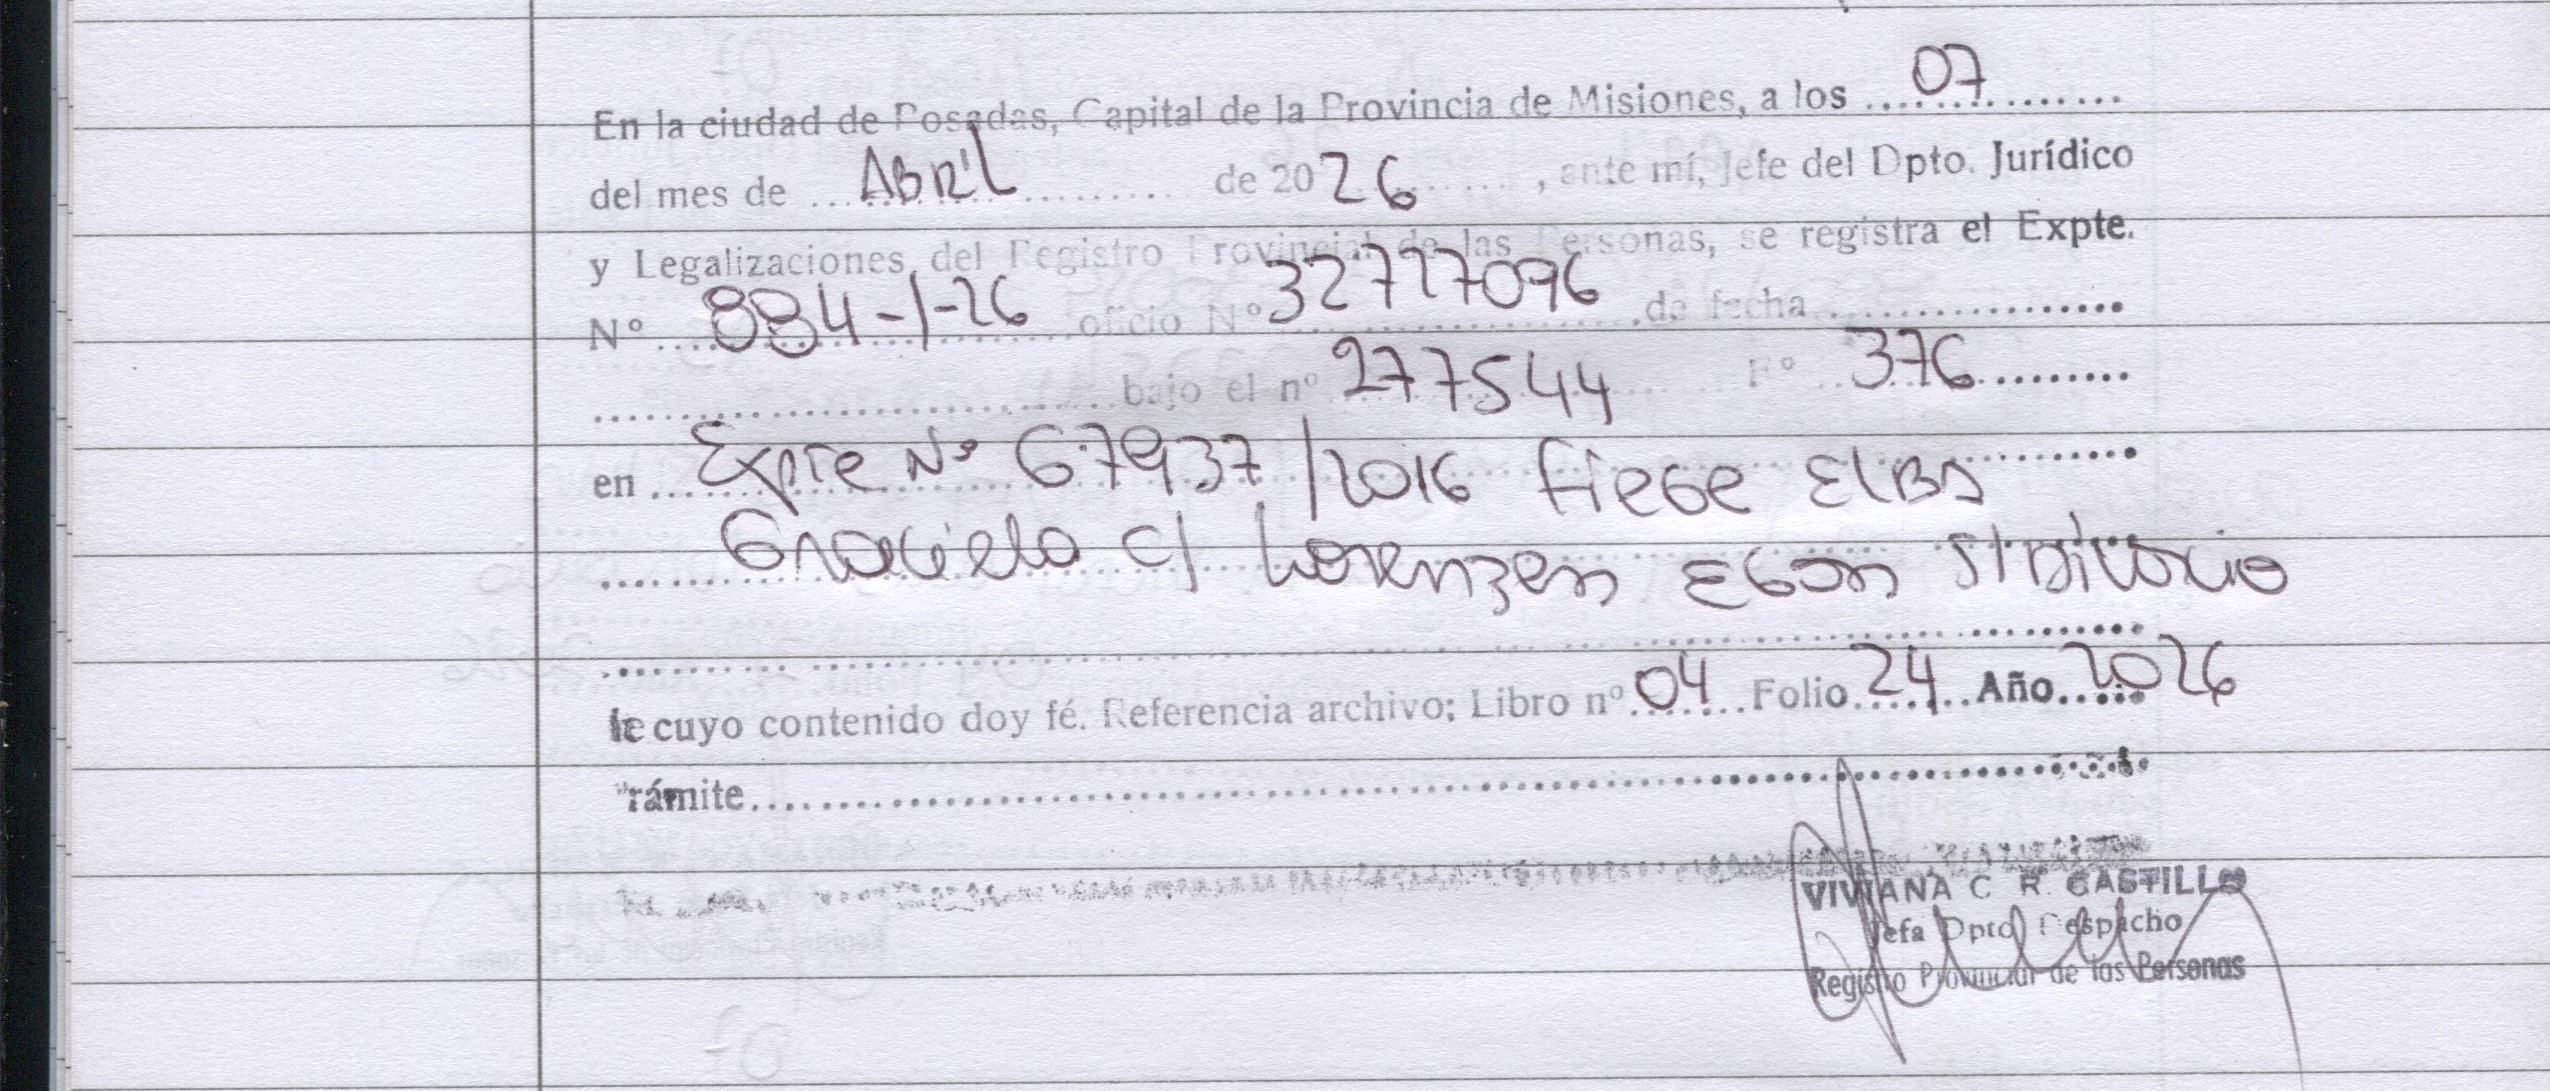 En la ciudad de Posadas, Capital de la Provincia de Misiones, a los 07
del mes de Abril de 2026, ante mí, Jefe del Dpto. Jurídico
y Legalizaciones del Registro Provincial de las Personas, se registra el Expte.
Nº 884-1-26 oficio Nº 32727096 de fecha
bajo el nº 277544 Fº 376
en Expte Nº 67937/2016 Fiege Elba
Graciela c/ Lorenzen Egon s/ Divorcio
de cuyo contenido doy fé. Referencia archivo; Libro nº 04 Folio 24 Año 2026
trámite
VIVIANA C R. CASTILLO
Jefa Dpto Despacho
Registro Provincial de las Personas